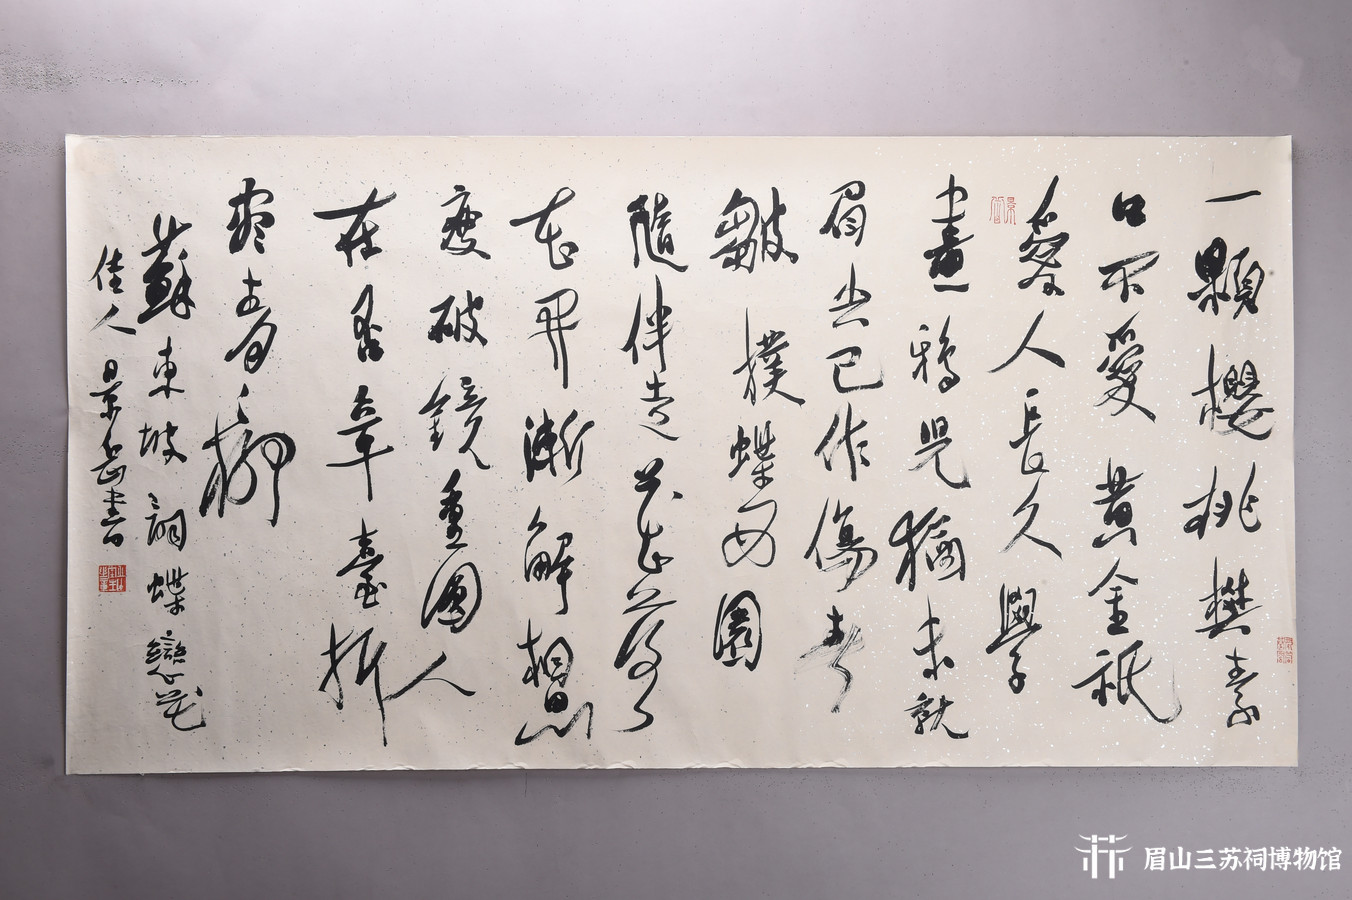 一顆櫻桃樊素
口不愛黃金祇
愛人長久學
畫鴉兒猶未就
眉尖已作傷春
皺撲蝶西園
隨伴走花落
花開漸解相思
瘦破鏡重圓人
在否章臺折
盡青青柳
蘇東坡詞蝶戀花
佳人景岳書
眉山三苏祠博物馆